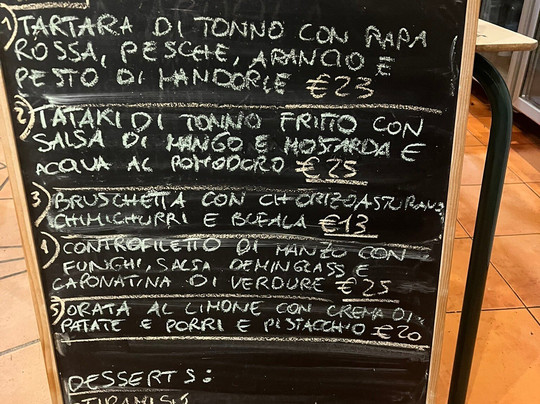 1) TARTARA DI TONNO CON RAPA
ROSSA, PESCHE, ARANCIO E
PESTO DI MANDORLE €23
2) TATAKI DI TONNO FRITTO CON
SALSA DI MANGO E MOSTARDA E
ACQUA AL POMODORO €25
3) BRUSCHETTA CON CHORIZO ASTURIANO,
CHIMICHURRI E BUFALA €13
4) CONTROFILETTO DI MANZO CON
FUNGHI, SALSA DEMINGLASS E
CAPONATINA DI VERDURE €25
5) ORATA AL LIMONE CON CREMA DI
PATATE E PORRI E PISTACCHIO €20
DESSERTS:
TIRAMISÙ